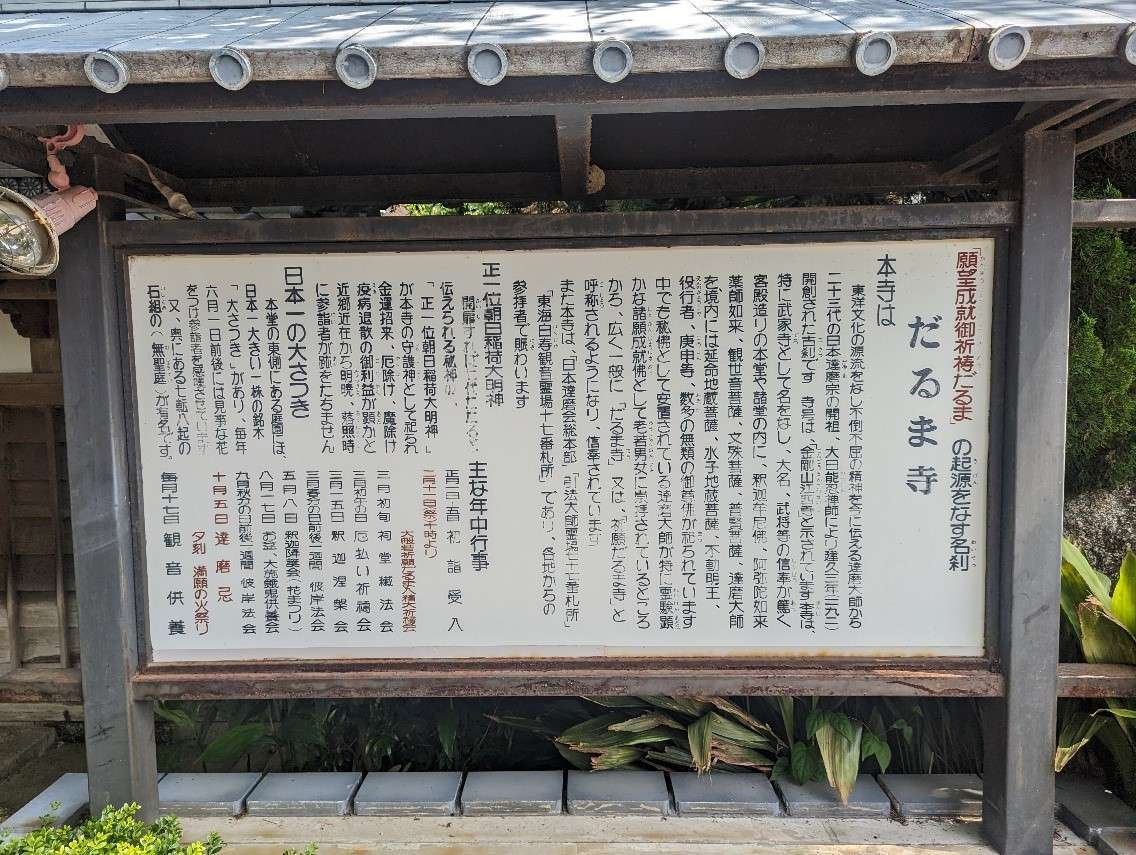 「願望成就御祈祷だるま」の起源をなす名刹
だるま寺
本寺は
東洋文化の源流をなし不倒不屈の精神を今に伝える達磨大師から
二十三代の日本達磨宗の開祖、大日能忍禅師により建久三年(一一九二)
開創された古刹です 寺号は、「金剛山江西寺と示されています 本寺は、
特に武家寺として名をなし、大名、武将等の信奉が篤く、
客殿造りの本堂や諸堂の内に、釈迦牟尼佛、阿弥陀如来
薬師如来、観世音菩薩、文殊菩薩、普賢菩薩、達磨大師
を境内には延命地蔵菩薩、水子地蔵菩薩、不動明王、
役行者、庚申等、数多の無類の御尊佛が祀られています
中でも秘佛として安置されている達磨大師が特に霊験顕
かな諸願成就佛として老若男女に崇拝されているところ
から、広く一般に「だるま寺」又は、「祈願だるま寺」と
呼称されるようになり、信奉されています
また本寺は、「日本達磨会総本部」
「東海白寿観音霊場十七番札所」であり、各地からの
参拝者で賑わいます
正一位朝日稲荷大明神
伝えられる秘神
が本寺の守護神として祀られ
「正一位朝日稲荷大明神」
金運招来、厄除け、魔除け
疫病退散の御利益が顕かと
近郷近在から朝暁、落照時
に参詣者が跡をたちません
日本一の大さつき
本堂の東側にある庭園には、
日本一大きい一株の銘木
「大さつき」があり、毎年
六月一日前後には見事な花
をつけ参詣者を感嘆させています
又、奥にある七転八起の
石組の「無聖庭」が有名です。
主な年中行事
初詣受入
大般若祈願だるま入精大祈祷会
三月初旬 祠堂懺法会
三月初午の日 厄払い祈祷会
三月一五日 釈迦涅槃会
三月春分の日前後一週間 彼岸法会
五月八日 釈迦降誕会(花まつり)
八月一七日 お盆、大施餓鬼供養会
九月秋分の日前後一週間 彼岸法会
十月五日 達磨忌
夕刻 満願の火祭り
毎月十七日 観音供養